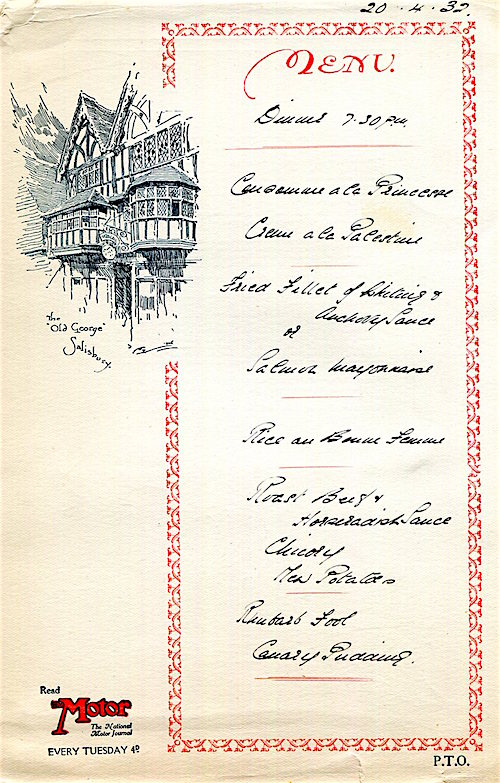 20 · 4 · 32.
MENU.
Dinner 7-30 p.m.
Consomme a la Princesse
Creme a la Palestine
Fried Fillet of Whiting &
Anchovy Sauce
or
Salmon Mayonnaise
Rice au Bonne Femme
Roast Beef &
Horseradish Sauce
Chicory
New Potatoes
Rhubarb Fool
Canary Pudding.
The
"Old George"
Salisbury.
Read
The Motor
The National
Motor Journal
EVERY TUESDAY 4D
P.T.O.